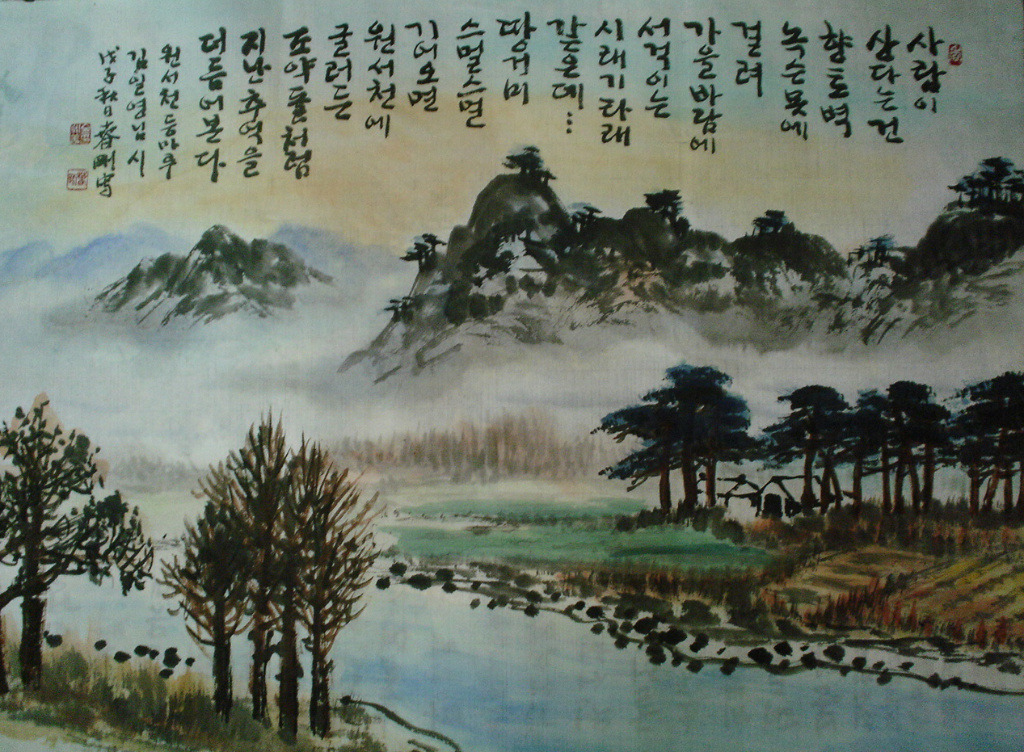 사람이
산다는 건
향토벽
녹슨 못에
걸려
가을바람에
서걱이는
시래기 타래
같은데...
땅거미
스멀스멀
기어오면
원서천에
굴러든
조약돌처럼
지난 추억을
더듬어본다
원서천 등마루
김일영님 시
戊子秋日春剛寫